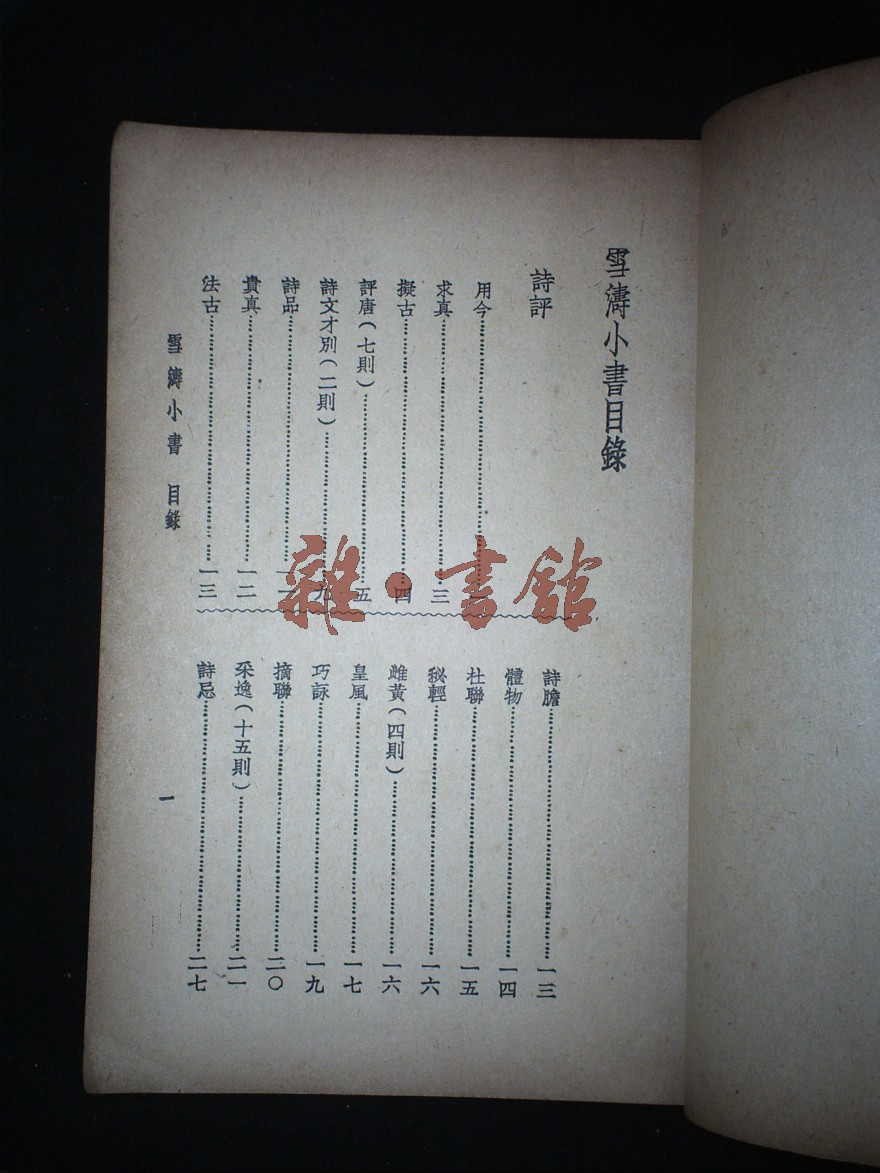 雪濤小書目錄
詩評
用今
求真……三
擬古……四
評唐（七則）……五
詩文才別（二則）……九
詩品
貴真……一二
法古……一三
詩膽……一三
體物……一四
杜聯……一五
秘輕……一六
雌黃（四則）……一六
皇風……一七
巧詠……一九
摘聯……二〇
采逸（十五則）……二一
詩忌……二七
雪濤小書 目錄
一
雜·書館